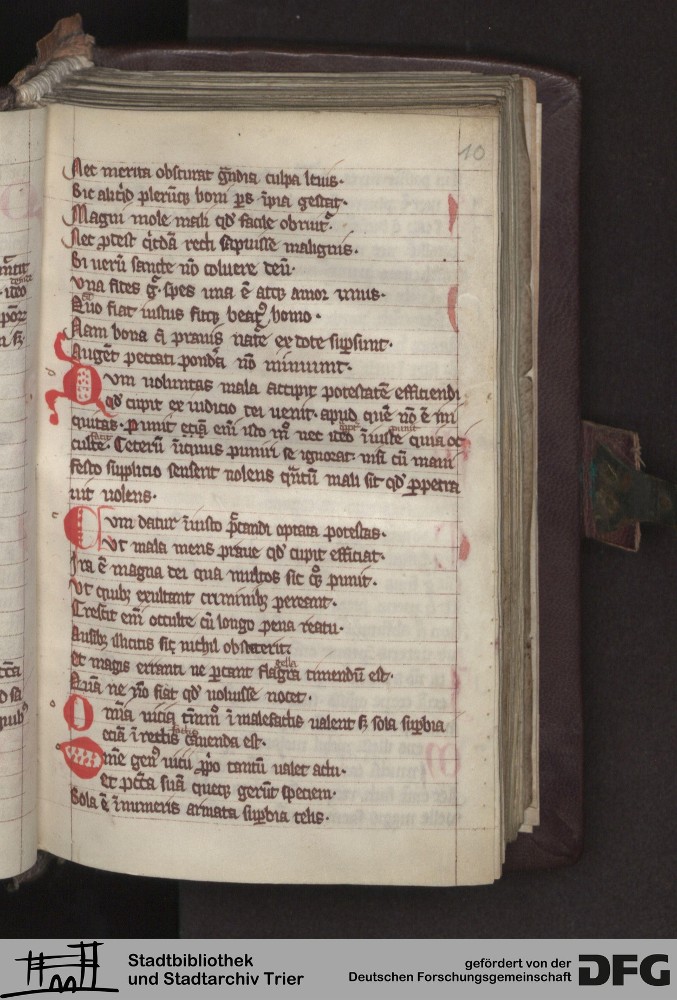 10
Nec merita obscurat gͣndia culpa leuis·
Sic aliqͥd plerūq; boni ꝑs īpia gestat·
Magni mole mali qd̛ facile obruitᷣ·
Nec ꝓdest qͥdā recti sapuisse malignis·
Si ueru᷑ sancte nō coluere deū·
Vna fides gͦ· spes una ē atq; amor unus·
Quo fiat iustus
Nam bona
Auget peccati pondꝰa nō minuunt·
Cum uoluntas mala accipit potestatē efficiendi
qd̛ cupit ex iudicio dei uenit· apud quē nō ē ini
quitas· Punit etiā em̄ isto mͦ nec ideo īiuste quia oc
culte· Ceterū iniquus puniri se ignorat· nisi cū mani
festo supplicio senserit nolens qͣntū mali sit qd̛ ꝑpetra
uit uolens·
Cum datur iniusto pͨcandi optata potestas·
Vt mala mens praue qd̛ cupit efficiat·
Ira ē magna dei qua multos sic qͦꝫ punit·
Vt quibꝫ exultant criminibꝫ pereant·
Crescit em̄ occulte cū longo pena reatu·
Ausibꝫ illicitis sic nichil obstiterit·
Et magis erranti ne parcant flagra timendū est·
Quā ne nō fiat qd̛ uoluisse nocet·
Omīa uicia tm̄mͦ ī malefactis ualent sꝫ sola suꝑbia
etiā ī rectis factis cauenda est·
Om̄e genꝰ uicii ꝓpͦo tantū ualet actu·
et pcc̄ta suā queq; gerūt speciem·
Sola ē īnumeris armata suꝑbia telis·
Stadtbibliothek
und Stadtarchiv Trier
gefördert von der
Deutschen Forschungsgemeinschaft
DFG